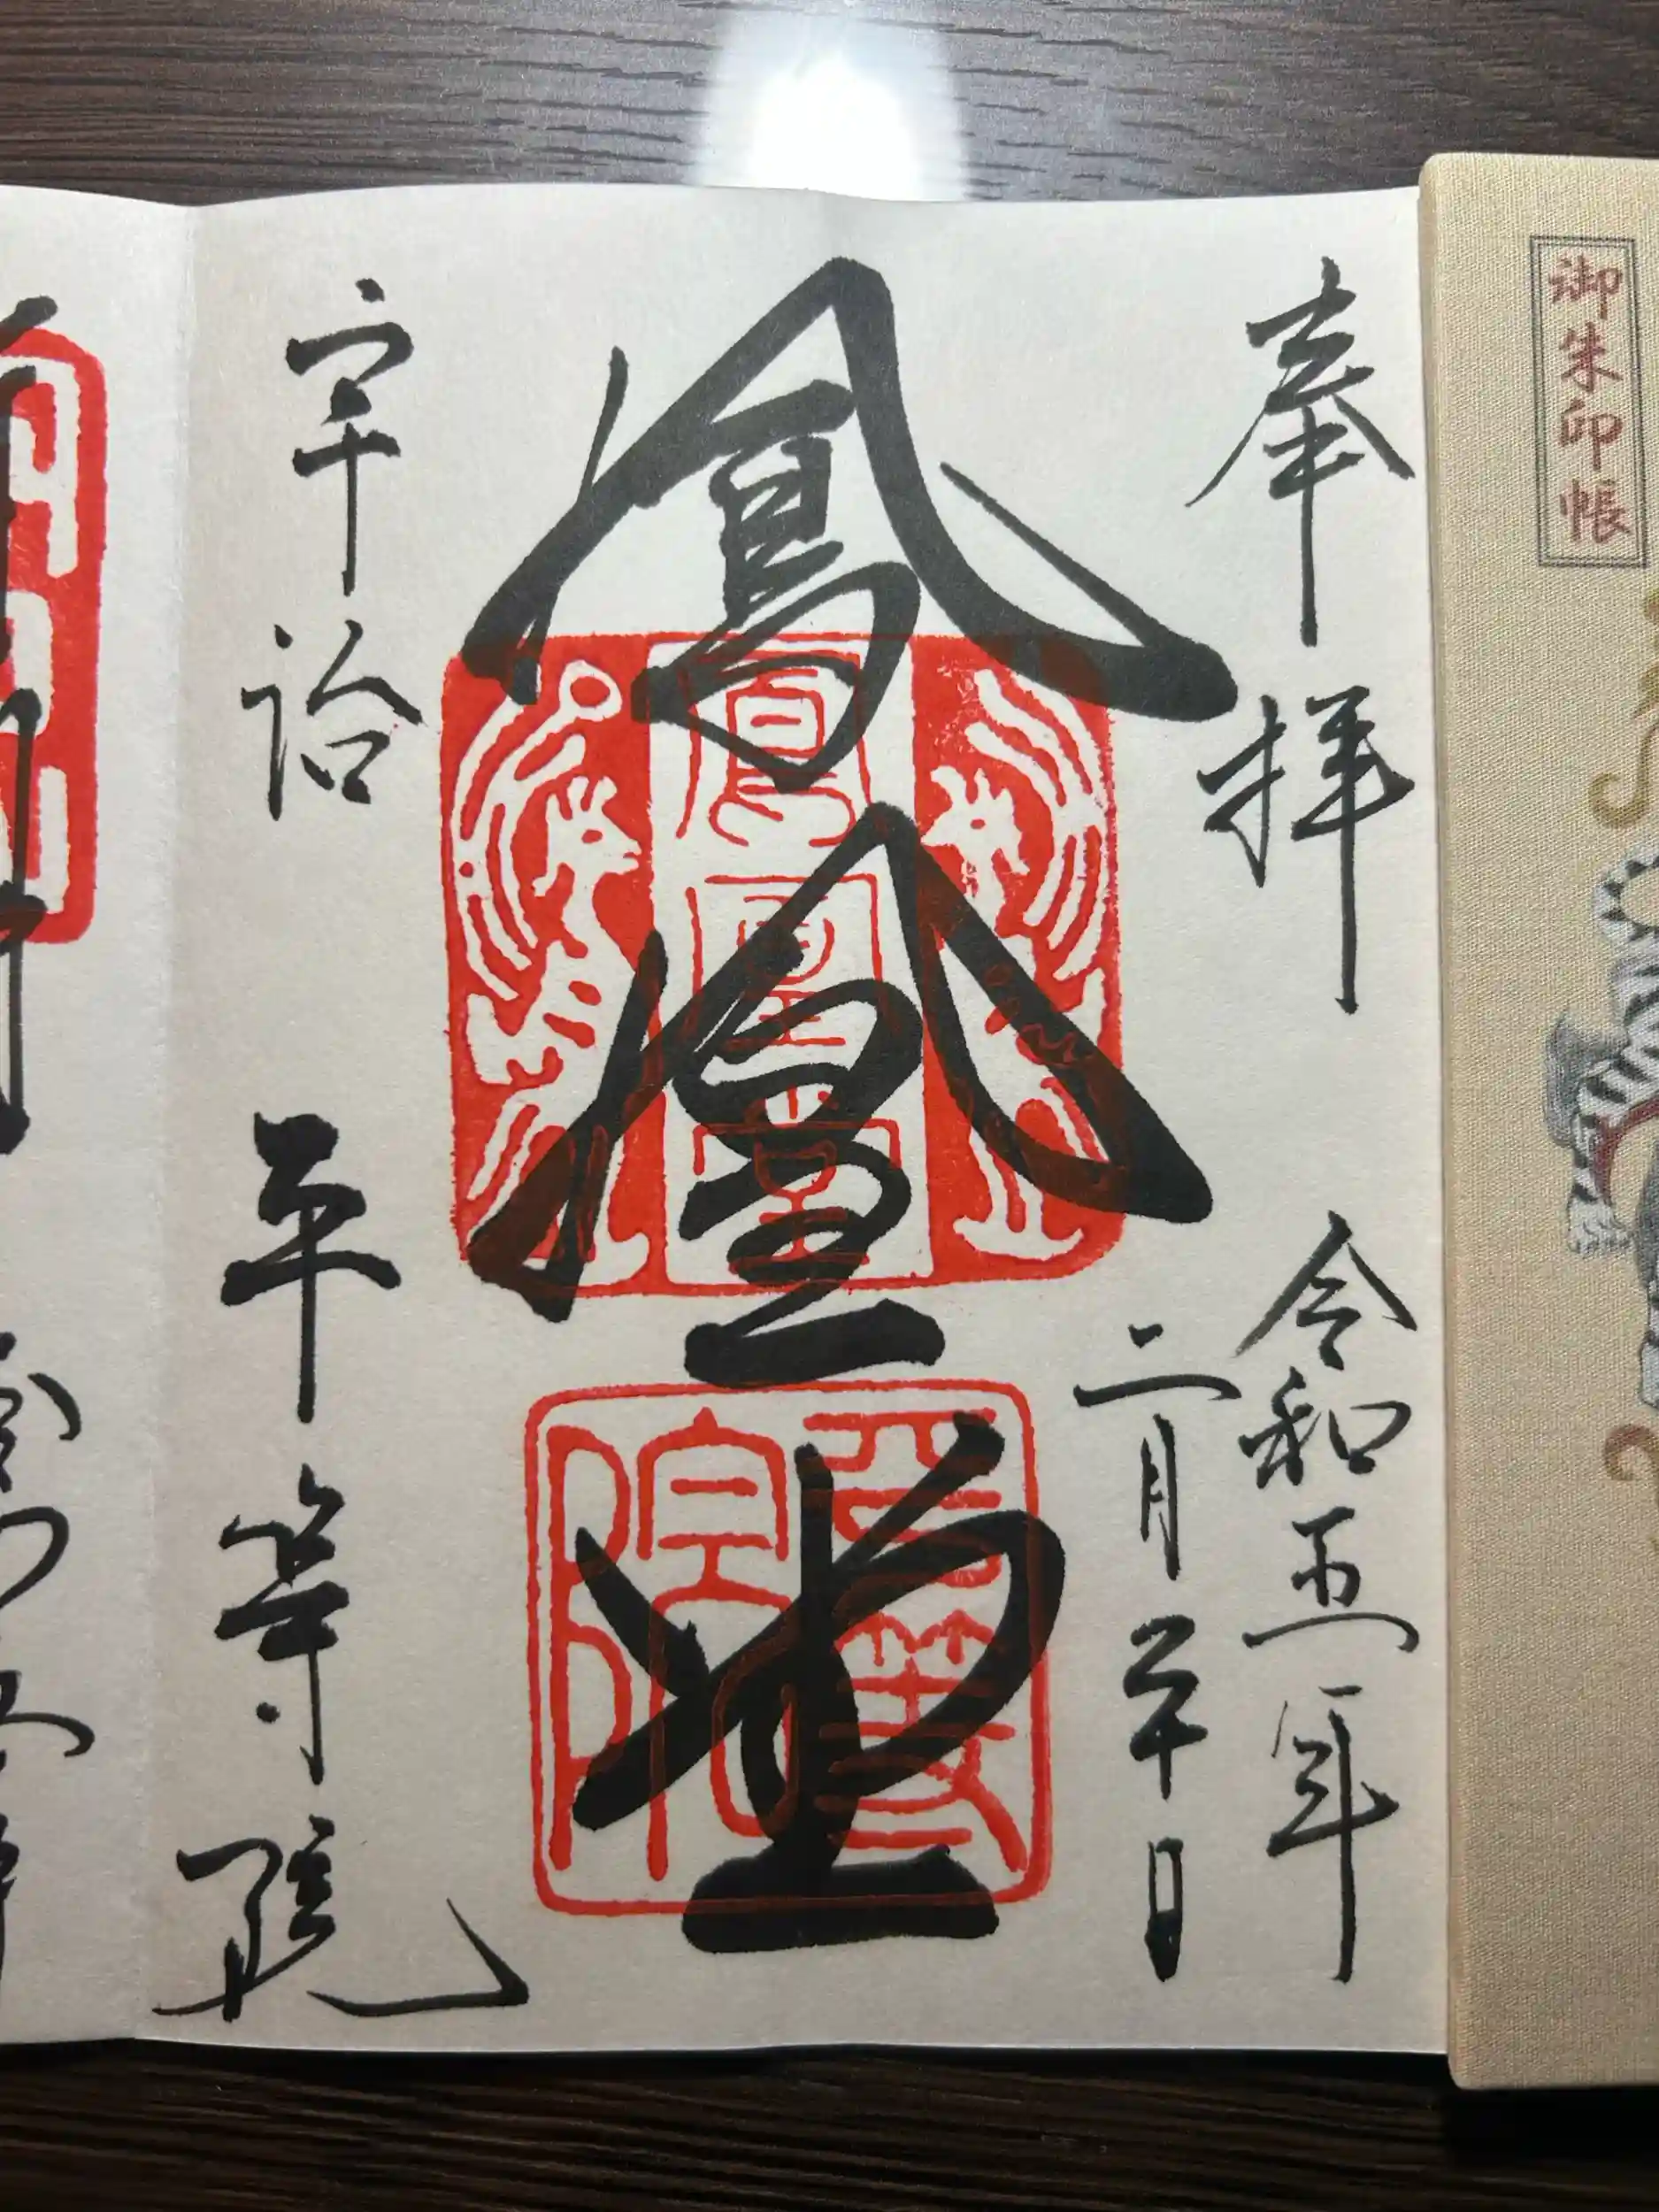 御朱印帳
奉拝
令和五年
二月二十日
鳳凰堂
鳳凰堂
宇治
平等院